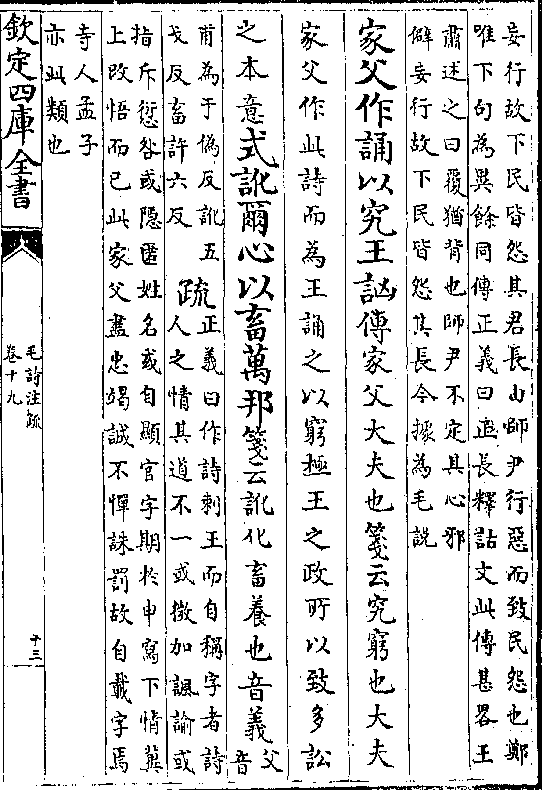 妄行故下民皆怨其君長由師尹行惡而致民怨也鄭
唯下句為異餘同傳正義曰正長釋詁文此傳甚畧王
肅述之曰覆猶背也師尹不定其心邪
僻妄行故下民皆怨其長今據為毛說
家父作誦以究王訩傳家父大夫也箋云究窮也大夫
家父作此詩而為王誦之以窮極王之政所以致多訟
之本意式訛爾心以畜萬邦箋云訛化畜養也音義父音
甫為于偽反訛五
戈反畜許六反
疏正義曰作詩刺王而自稱字者詩
人之情其道不一或微加諷諭或
指斥愆咎或隱匿姓名或自顯官字期於申寫下情冀
上改悟而已此家父盡忠竭誠不憚誅罰故自載字焉
寺人孟子
亦此類也
欽定四庫全書
毛詩注疏
卷十九
十三